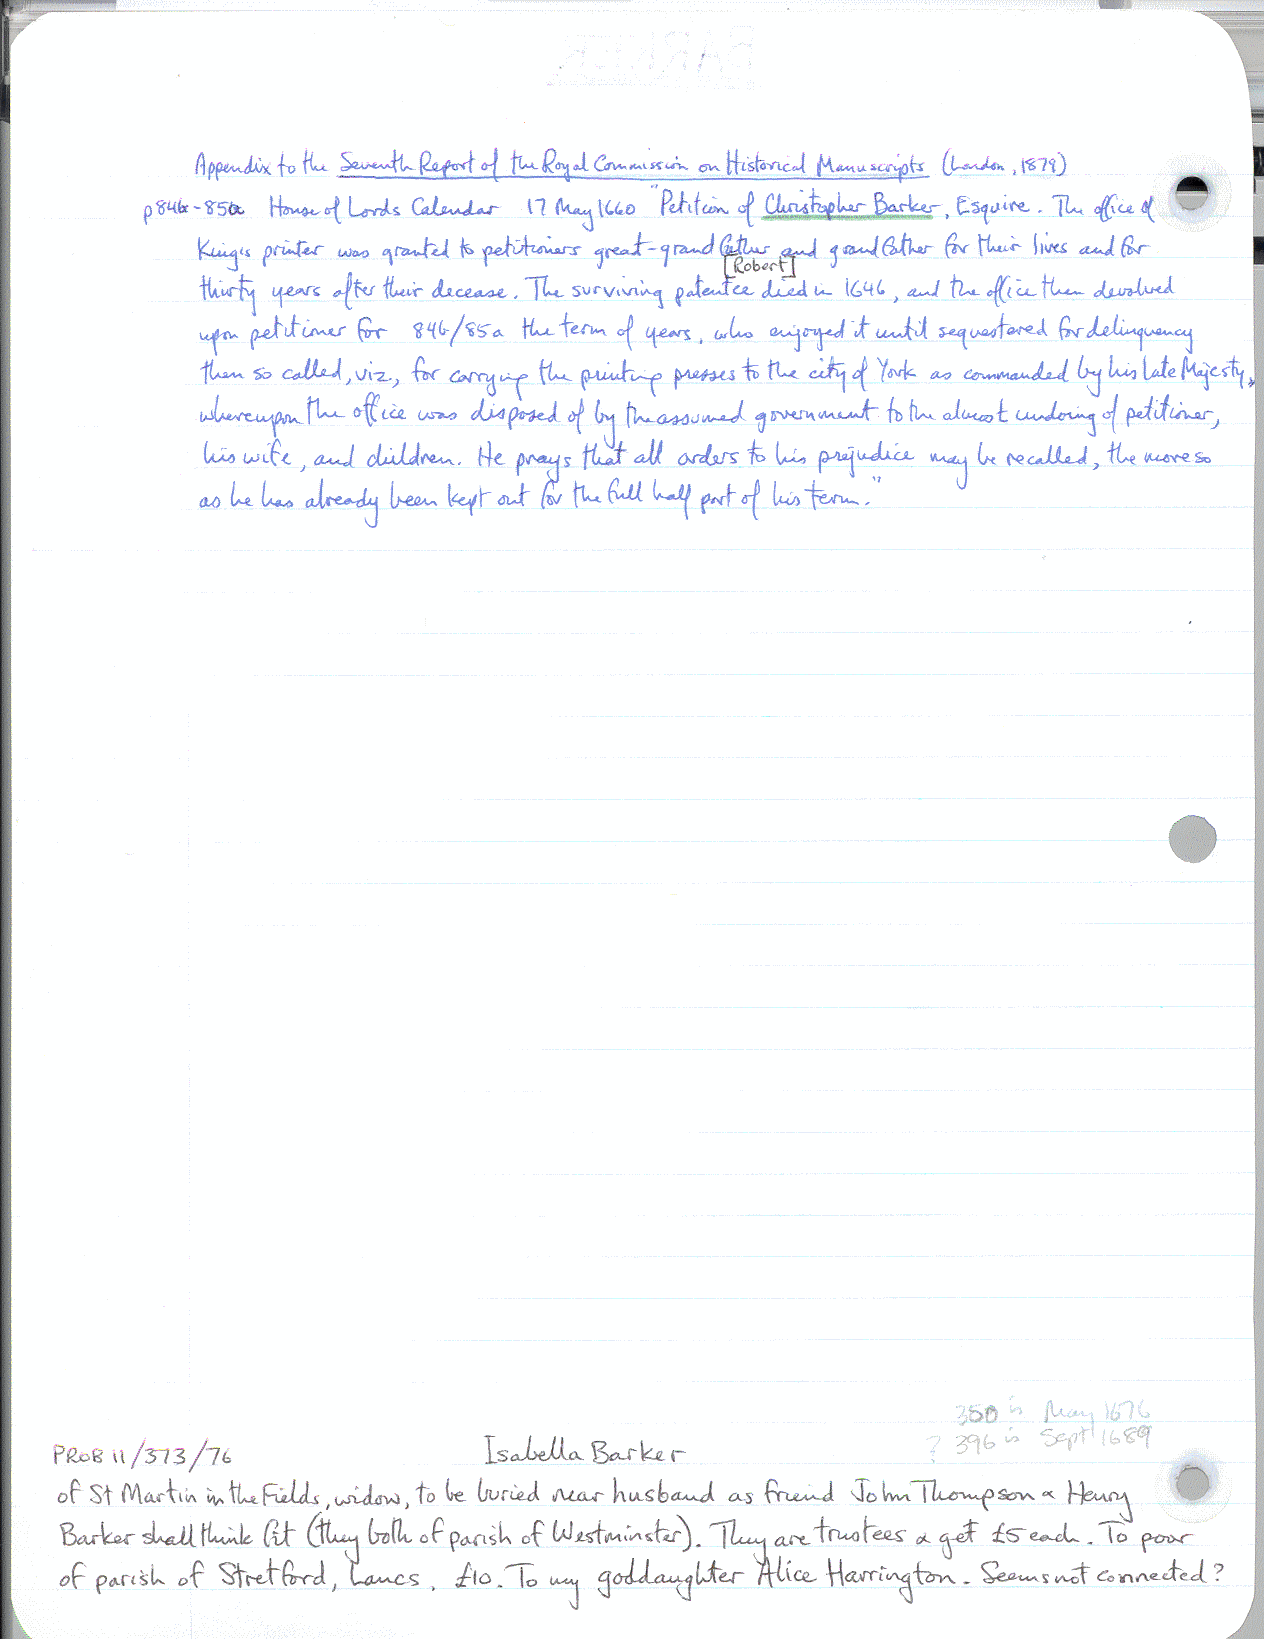 Appendix to the Seventh Report of the Royal Commission on Historical Manuscripts (London, 1879)
p84b-85a House of Lords Calendar 17 May 1660 "Petition of Christopher Barker, Esquire. The office of
King's printer was granted to petitioners great-grandfather and grandfather for their lives and for
[Robert]
thirty years after their decease. The surviving patentee died in 1646, and the office then devolved
upon petitioner for 84b/85a the term of years, who enjoyed it until sequestered for delinquency
then so called, viz., for carrying the printing presses to the city of York as commanded by his late Majesty,
whereupon the office was disposed of by the assumed government to the almost undoing of petitioner,
his wife, and children. He prays that all orders to his prejudice may be recalled, the more so
as he has already been kept out for the full half part of his term."
350 is May 1676
? 396 is Sept 1689
PROB 11/373/76 Isabella Barker
of St Martin in the Fields, widow, to be buried near husband as friend John Thompson & Henry
Barker shall think fit (they both of parish of Westminster). They are trustees & get £5 each. To poor
of parish of Stretford, Lancs, £10. To my goddaughter Alice Harrington. Seems not connected?